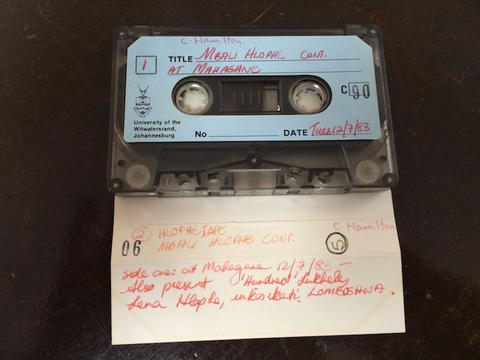 C. Hamilton.
1
TITLE MBALI HLOPHE CONT.
AT MAHAGANE
C 90
University of the
Witwatersrand,
Johannesburg
No
DATE Tues 12/7/83
C. Hamilton
2 HLOPHE TAPE
06 MBALI HLOPHE CONT.
5
side one: at Mahagane 12/7/83 –
Also present 'Hundred'
Lena Hlophe, inkosikati LOMBOSHWA.